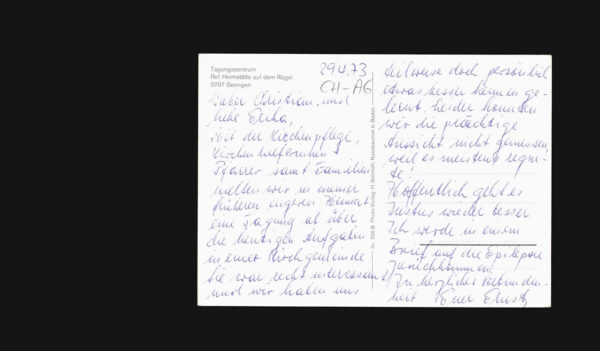 Tagungszentrum
Ref. Heimstätte auf dem Rügel
5707 Seengen
29.4.73
CH-AG
Lieber Christian und
liebe Erika,
Mit der Kirchenpflege,
Pfarrer samt Familien
hielten wir in unser
früheren engeren Heimat
eine Tagung ab über
die heutigen Aufgaben
in einer Kirchgemeinde
Sie war recht interessant
und wir haben uns
teilweise doch persönlich
etwas besser kennen ge-
lernt. Leider konnten
wir die prächtige
Aussicht nicht geniessen,
weil es meistens regne-
te!
Hoffentlich geht es
Justus wieder besser.
Ich werde in einem
Brief auf die Epilepsie
zurückkommen
In herzlicher Verbunden-
heit Euer